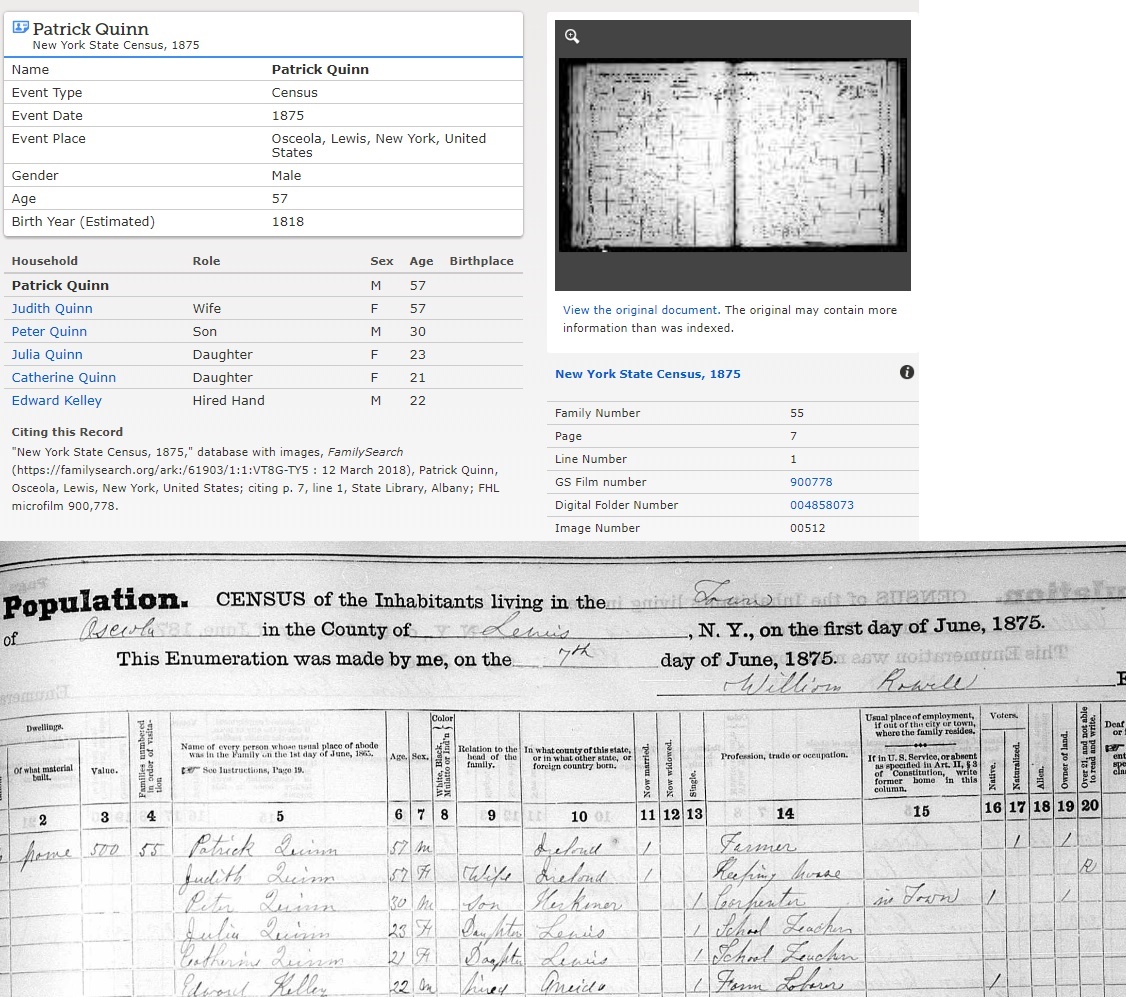 Patrick Quinn
New York State Census, 1875
Name Patrick Quinn
Event Type Census
Event Date 1875
Event Place Osceola, Lewis, New York, United States
Gender Male
Age 57
Birth Year (Estimated) 1818
Household Role Sex Age Birthplace
Patrick Quinn M 57
Judith Quinn Wife F 57
Peter Quinn Son M 30
Julia Quinn Daughter F 23
Catherine Quinn Daughter F 21
Edward Kelley Hired Hand M 22
Citing this Record
"New York State Census, 1875," database with images, FamilySearch
(https://familysearch.org/ark:/61903/1:1:VT8G-TY5 : 12 March 2018), Patrick Quinn,
Osceola, Lewis, New York, United States; citing p. 7, line 1, State Library, Albany; FHL
microfilm 900,778.
View the original document. The original may contain more
information than was indexed.
New York State Census, 1875
Family Number 55
Page 7
Line Number 1
GS Film number 900778
Digital Folder Number 004858073
Image Number 00512
Population. CENSUS of the Inhabitants living in the Town
of Osceola in the County of Lewis, N. Y., on the first day of June, 1875.
This Enumeration was made by me, on the 7th day of June, 1875.
William Rowell
Dwellings.
Of what material built.
Value.
Families numbered in order of visitation
Name of every person whose usual place of abode was in the Family on the 1st day of June, 1865.
See Instructions, Page 19.
Age.
Sex.
Color
White, Black, Mulatto or Ind'n
Relation to the head of the family.
In what county of this state, or in what other state, or foreign country born.
Now married.
Now widowed.
Single.
Profession, trade or occupation.
Usual place of employment, if out of the city or town, where the family resides.
If in U. S. Service, or absent as specified in Art. II, § 3 of Constitution, write former home in this column.
Voters.
Native.
Naturalized.
Alien.
Owner of land.
Over 21, and not able to read and write.
2 3 4 5 6 7 8 9 10 11 12 13 14 15 16 17 18 19 20
frame 500 55 Patrick Quinn 57 M Ireland 1 Farmer 1 1
Judith Quinn 57 F Wife Ireland 1 Keeping house R
Peter Quinn 30 M Son Herkimer 1 Carpenter in Town 1 1
Julia Quinn 23 F Daughter Lewis 1 School Teacher
Catherine Quinn 21 F Daughter Lewis 1 School Teacher
Edward Kelley 22 M hired Oneida 1 Farm Laborer 1